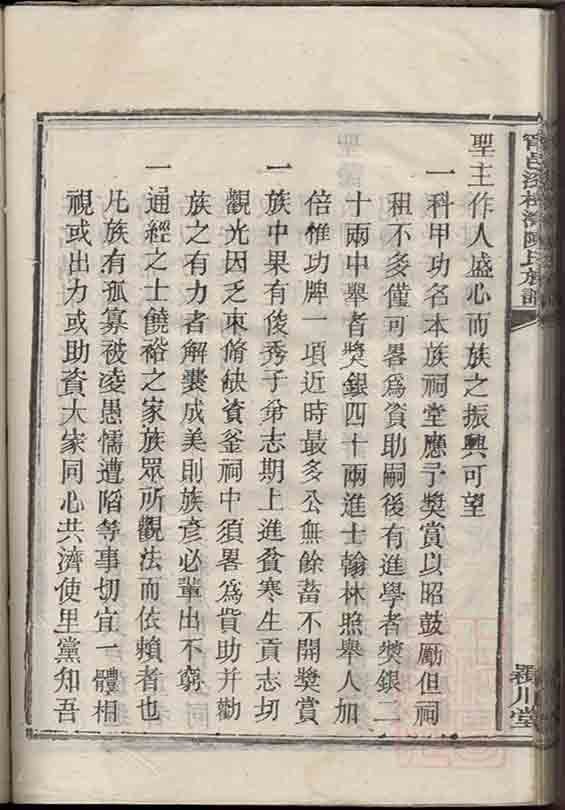 聖主作人盛心而族之振興可望
一科甲功名本族祠堂應予奬賞以昭鼓勵但祠
租不多僅可畧爲資助嗣後有進學者奬銀二
十兩中舉者奬銀四十兩進士翰林照舉人加
倍惟功牌一項近時最多公無餘蓄不開奬賞
一族中果有俊秀子弟志期上進貧寒生貢志切
觀光因乏束脩缺資釜祠中須畧爲貲助并勸
族之有力者解囊成美則族彦必輩出不窮
一通經之士饒裕之家族眾所觀法而依賴者也
凡族有孤寡被凌愚懦遭陷等事切宜一體相
視或出力或助資大家同心共濟使里黨知吾
陳氏族譜
潁川堂